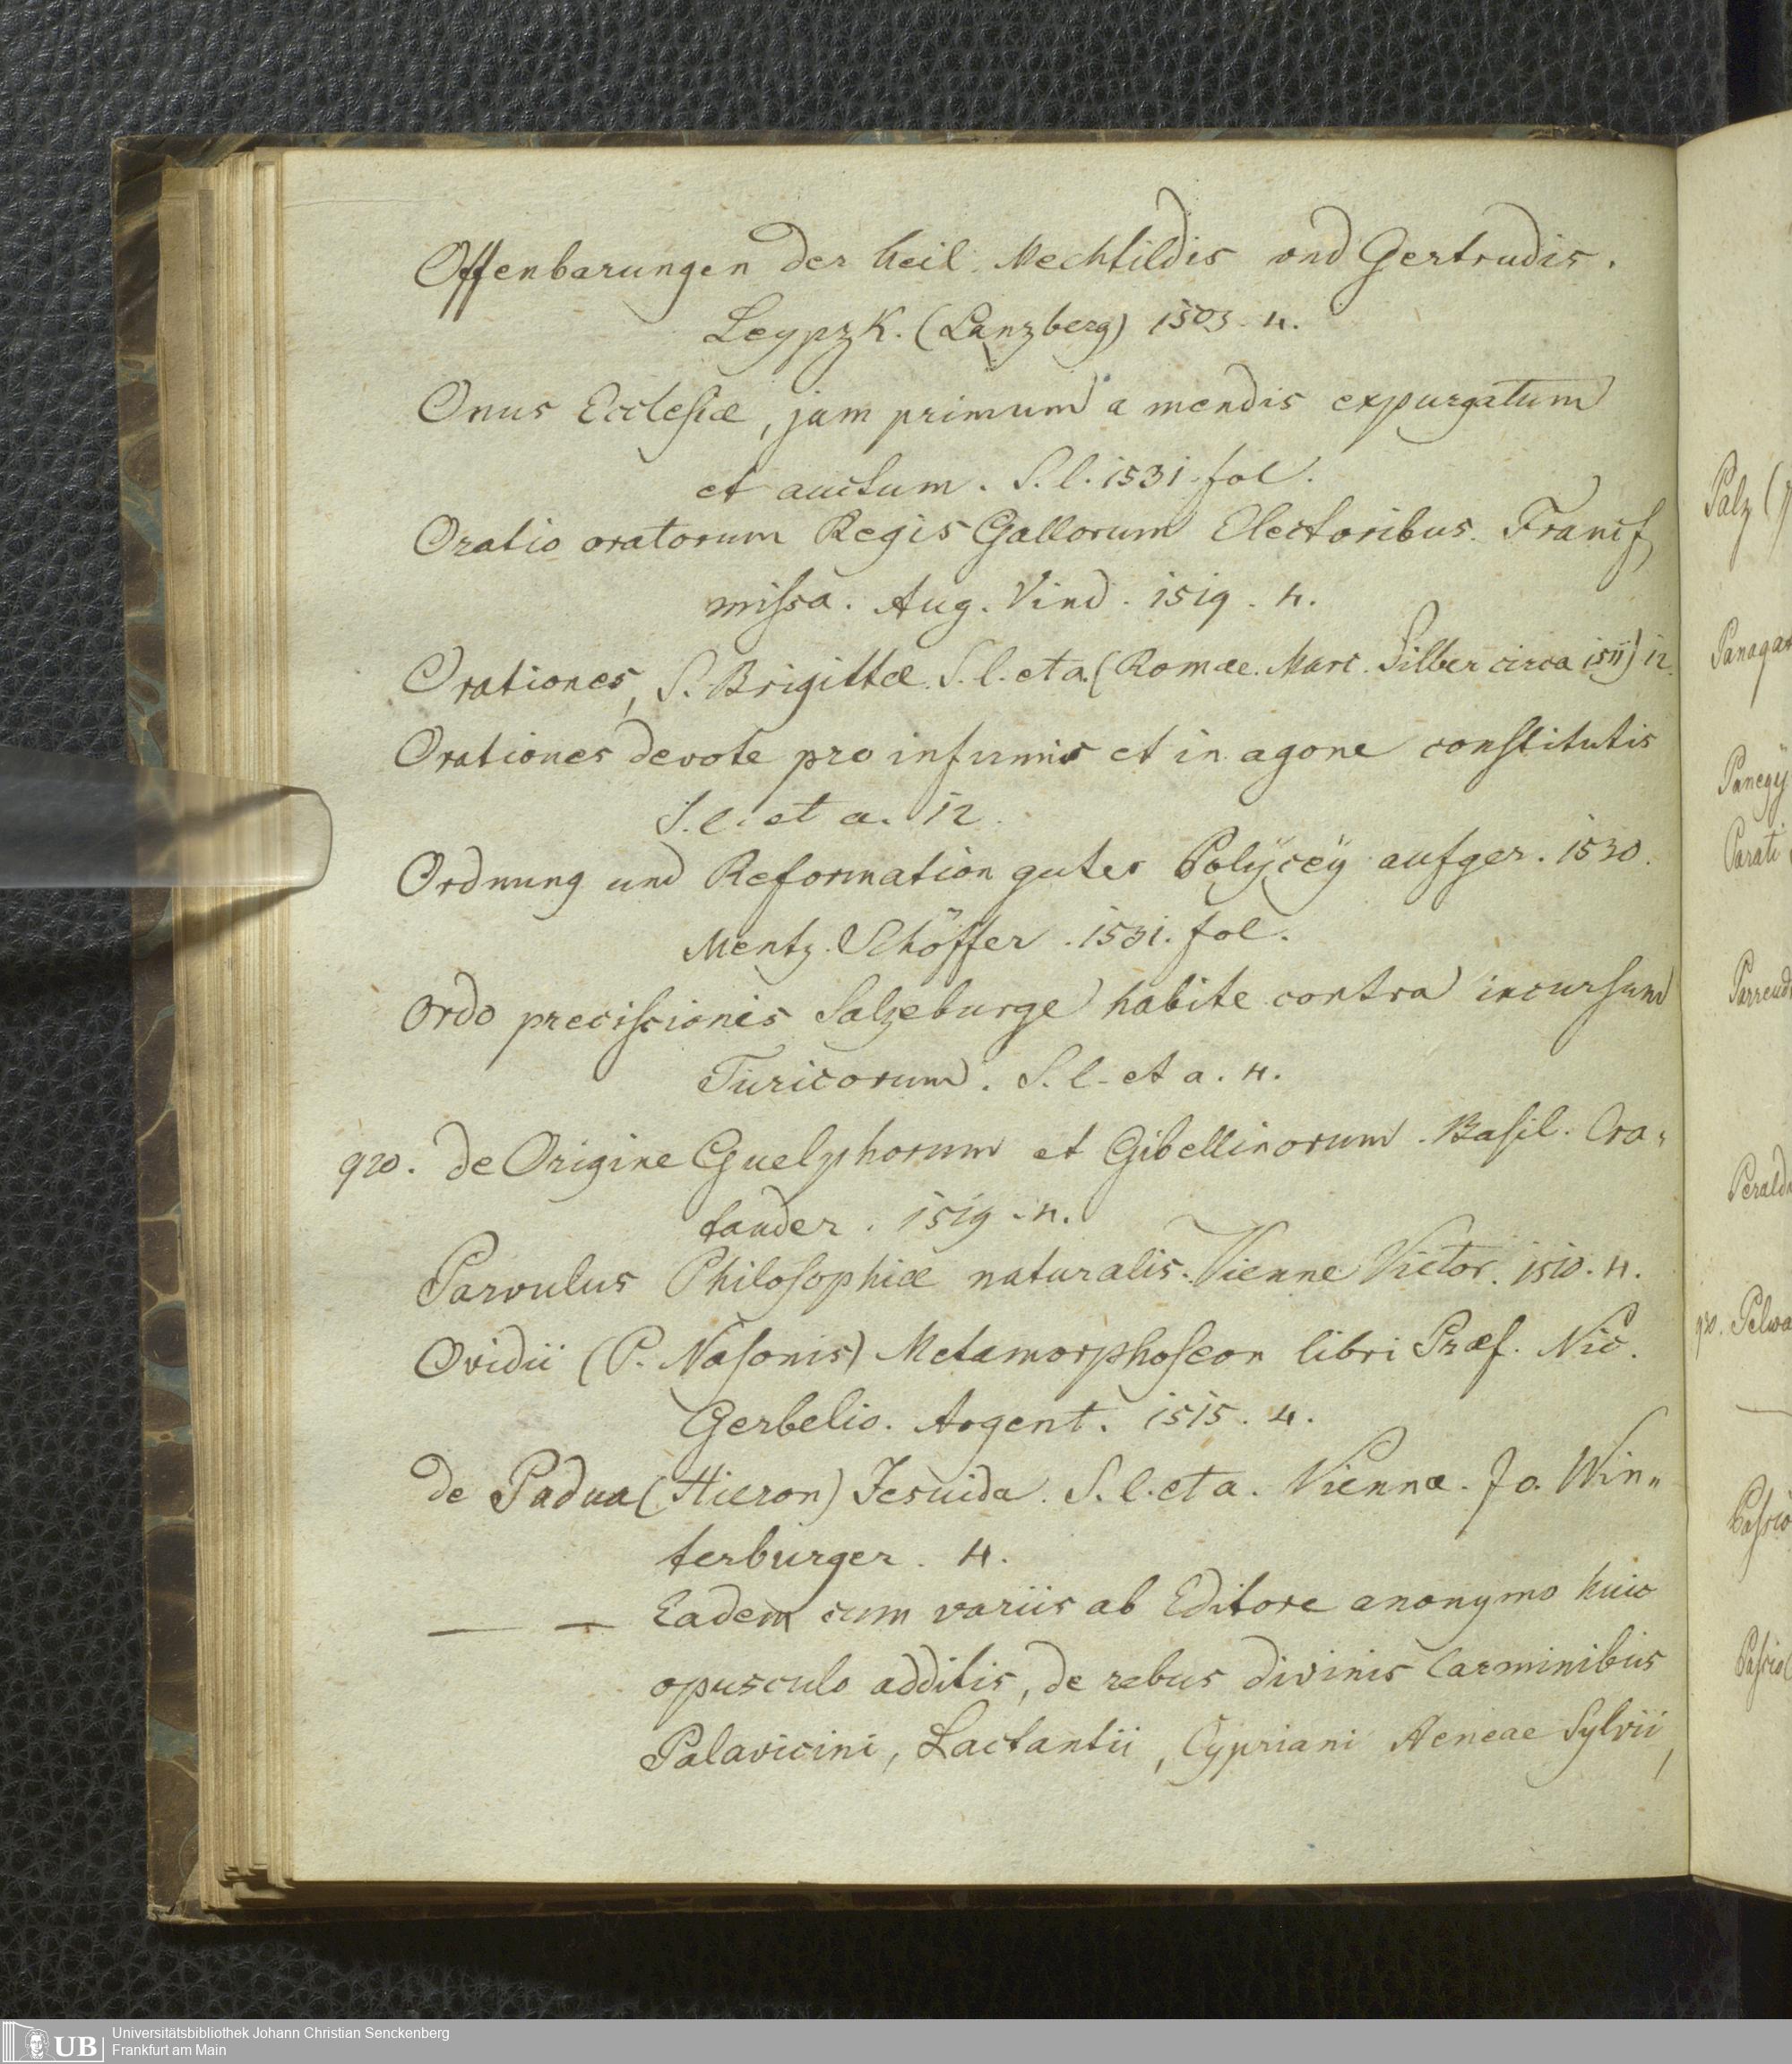 Offenbarungen der heil. Mechtildis und Gertrudis.
Leypzk. (Lanzberg) 1503. 4.
Onus Ecclesiæ, jam primum a mendis expurgatum
et auctum. S. l. 1531. fol.
Oratio oratorum Regis Gallorum Electoribus. Francf
missa. Aug. Vind. 1519. 4.
Orationes, S. Brigittæ. S. l. et a. (Romae. Marc. Silber circa 1511) 12.
Orationes devote pro infirmis et in agone constitutis
S. l. et a. 12.
Ordnung und Reformation guter Polÿceÿ aufger. 1530.
Mentz. Schöffer. 1531. fol.
Ordo precissionis Salzeburge habite contra incursum
Turicorum. S. l. et a. 4.
920. de Origine Guelphorum et Gibellinorum. Basil. Cra-
tander. 1519. 4.
Parvulus Philosophiæ naturalis. Vienne Victor. 1510. 4.
Ovidii (P. Nasonis) Metamorphoseon libri Præf. Nic.
Gerbelio. Argent. 1515. 4.
de Padua (Hieron) Jesuida. S. l. et a. Viennæ. Jo. Win-
terburger. 4.
— — Eadem cum variis ab Editore anonymo huic
opusculo additis, de rebus divinis Carminibus
Palavicini, Lactantii, Cypriani Aeneae Sylvii,
Palz
Panegÿ
Parati
Pelwa
UB
Universitätsbibliothek Johann Christian Senckenberg
Frankfurt am Main